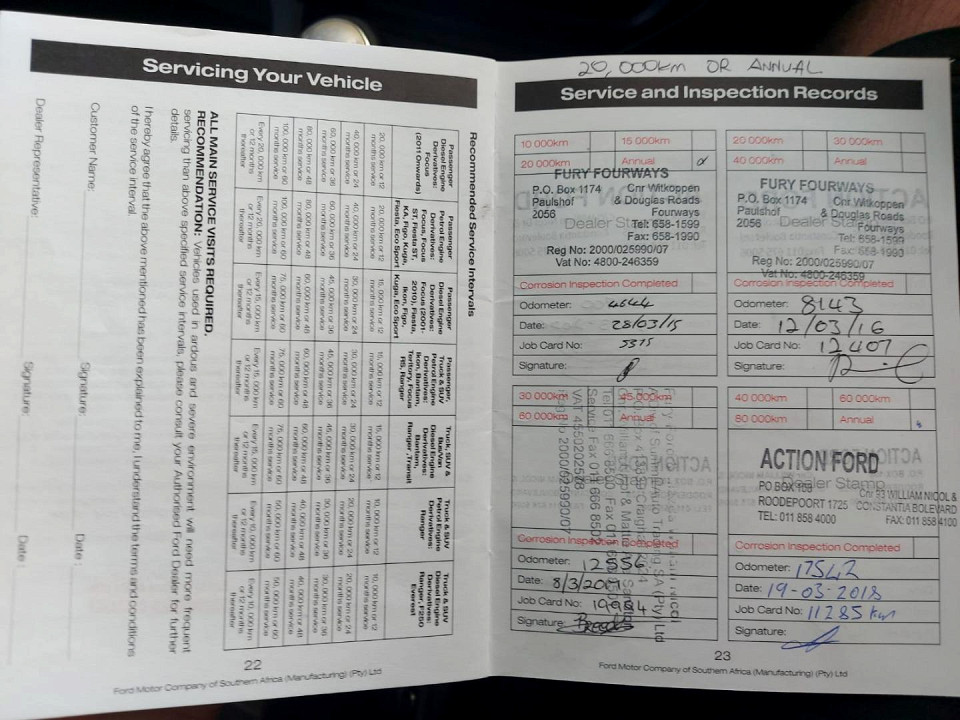 Servicing Your Vehicle
Recommended Service Intervals
Passenger Diesel Engine Derivatives: Focus (2011 Onwards)
20, 000 km or 12 months service
40, 000 km or 24 months service
60, 000 km or 36 months service
80, 000 km or 48 months service
100, 000 km or 60 months service
Every 20, 000 km or 12 months thereafter
Passenger Petrol Engine Derivatives: Focus, Focus ST, Fiesta ST, KA, Figo, Kuga, Fiesta, Eco Sport
20, 000 km or 12 months service
40, 000 km or 24 months service
60, 000 km or 36 months service
80, 000 km or 48 months service
100, 000 km or 60 months service
Every 20, 000 km or 12 months thereafter
Passenger Diesel Engine Derivatives: Focus (2001-2010), Fiesta, Ikon, Figo, Kuga, Eco Sport
15, 000 km or 12 months service
30, 000 km or 24 months service
45, 000 km or 36 months service
60, 000 km or 48 months service
75, 000 km or 60 months service
Every 15, 000 km or 12 months thereafter
Passenger, Truck & SUV Petrol Engine Derivatives: Ikon, Bantam, Territory, Focus RS, Ranger
15, 000 km or 12 months service
30, 000 km or 24 months service
45, 000 km or 36 months service
60, 000 km or 48 months service
75, 000 km or 60 months service
Every 15, 000 km or 12 months thereafter
Truck, SUV & Bus/Van Diesel Engine Derivatives: Bantam, Ranger, Transit
15, 000 km or 12 months service
30, 000 km or 24 months service
45, 000 km or 36 months service
60, 000 km or 48 months service
75, 000 km or 60 months service
Every 15, 000 km or 12 months thereafter
Truck & SUV Petrol Engine Derivatives: Ranger
10, 000 km or 12 months service
20, 000 km or 24 months service
30, 000 km or 36 months service
40, 000 km or 48 months service
50, 000 km or 60 months service
Every 10, 000 km or 12 months thereafter
Truck & SUV Diesel Engine Derivatives: Ranger, F250 Everest
10, 000 km or 12 months service
20, 000 km or 24 months service
30, 000 km or 36 months service
40, 000 km or 48 months service
50, 000 km or 60 months service
Every 10, 000 km or 12 months thereafter
ALL MAIN SERVICE VISITS REQUIRED.
RECOMMENDATION: Vehicles used in ardous and severe environment will need more frequent
servicing than above specified service intervals, please consult your Authorised Ford Dealer for further
details.
I hereby agree that the above mentioned has been explained to me, I understand the terms and conditions
of the service interval.
Customer Name: Signature: Date :
Dealer Representative: Signature: Date :
22
Ford Motor Company of Southern Africa (Manufacturing) (Pty) Ltd
20,000km OR ANNUAL
Service and Inspection Records
10 000km 15 000km
20 000km Annual
FURY FOURWAYS
P.O. Box 1174 Cnr Witkoppen
Paulshof & Douglas Roads
2056 Fourways
Dealer Stamp
Tel: 658-1599
Fax: 658-1990
Reg No: 2000/025990/07
Vat No: 4800-246359
Corrosion Inspection Completed
Odometer: 4644
Date: 28/03/15
Job Card No: 5375
Signature:
20 000km 30 000km
40 000km Annual
FURY FOURWAYS
P.O. Box 1174 Cnr Witkoppen
Paulshof & Douglas Roads
2056 Fourways
Dealer Stamp
Tel: 658-1599
Fax: 658-1990
Reg No: 2000/025990/07
Vat No: 4800-246359
Corrosion Inspection Completed
Odometer: 8143
Date: 12/03/16
Job Card No: 12407
Signature:
30 000km 45 000km
60 000km Annual
Corrosion Inspection Completed
Odometer: 12556
Date: 8/3/2017
Job Card No: 19984
Signature:
40 000km 60 000km
80 000km Annual
ACTION FORD
Dealer Stamp
PO BOX 108 Cnr 93 WILLIAM NICOL &
ROODEPOORT 1725 CONSTANTIA BOLEVARD
TEL: 011 858 4000 FAX: 011 858 4100
Corrosion Inspection Completed
Odometer: 17542
Date: 19-03-2018
Job Card No: 11285 km
Signature:
23
Ford Motor Company of Southern Africa (Manufacturing) (Pty) Ltd